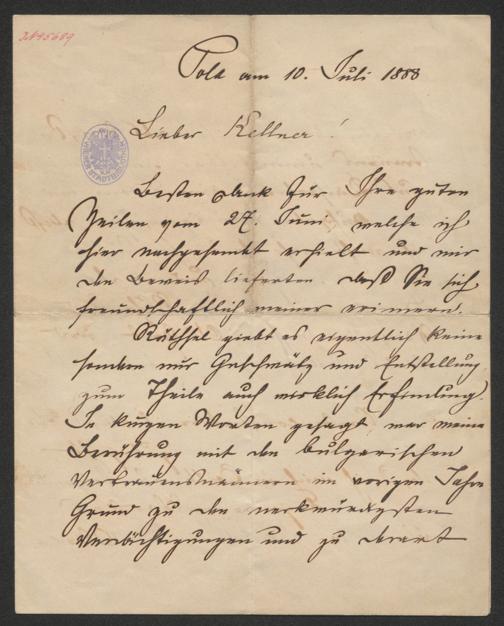 Pola am 10. Juli 1888
Lieber Kellner!
Besten Dank für Ihre guten
Zeilen vom 27. Juni welche ich
hier nachgesendet erhielt und mir
den Beweis lieferten daß Sie sich
freundschaftlich meiner erinnern.
Räthsel giebt es eigentlich keine
sondern nur Geschwätz und Entstellung
zum Theile auch wirklich Erfindung.
In kurzen Worten gesagt war meine
Berührung mit den bulgarischen
Vertrauensmännern im vorigen Jahre
Grund zu den merkwürdigsten
Verdächtigungen und zu derart